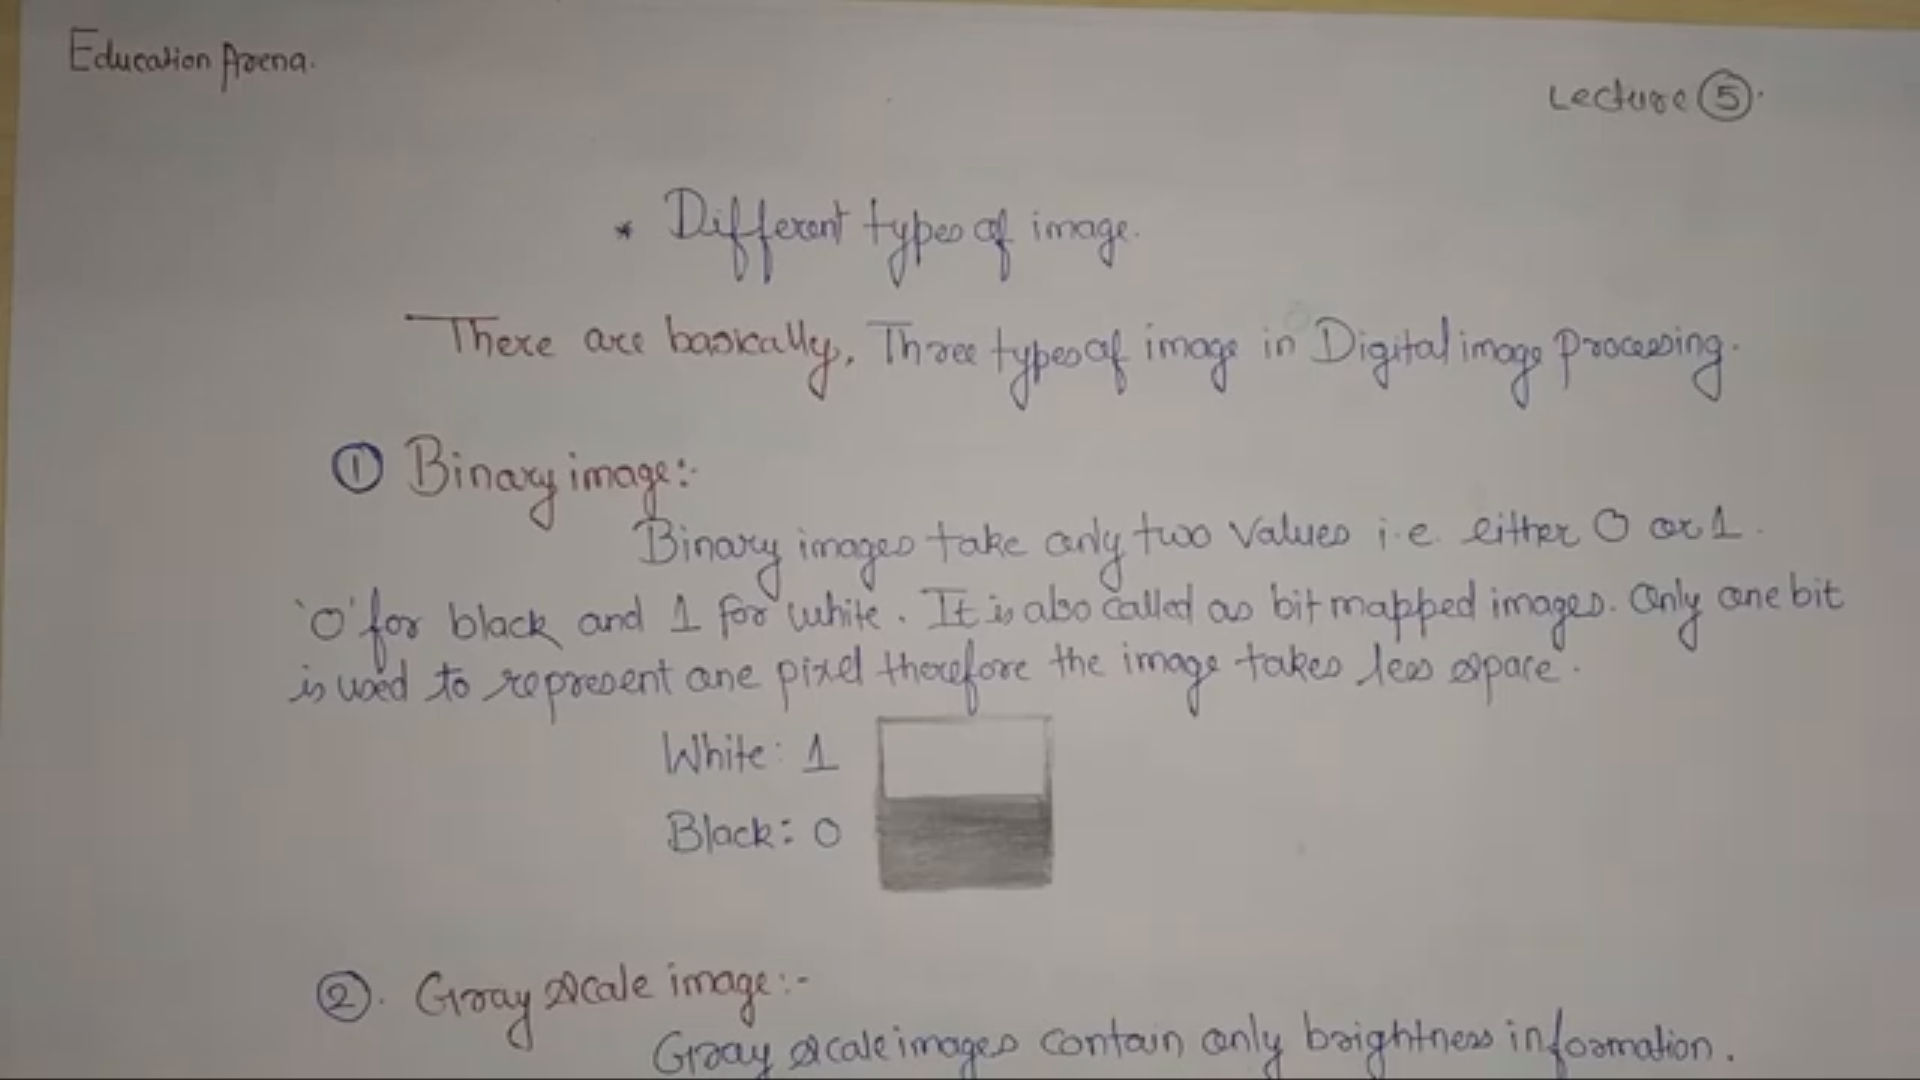 Education Arena.
Lecture ⑤.
* Different types of image.
There are basically, Three types of image in Digital image processing.
① Binary image:-
Binary images take only two values i.e. either 0 or 1.
'0' for black and 1 for white. It is also called as bit mapped images. Only one bit
is used to represent one pixel therefore the image takes less space.
White: 1
Black: 0
②. Gray scale image:-
Gray scale images contain only brightness information.